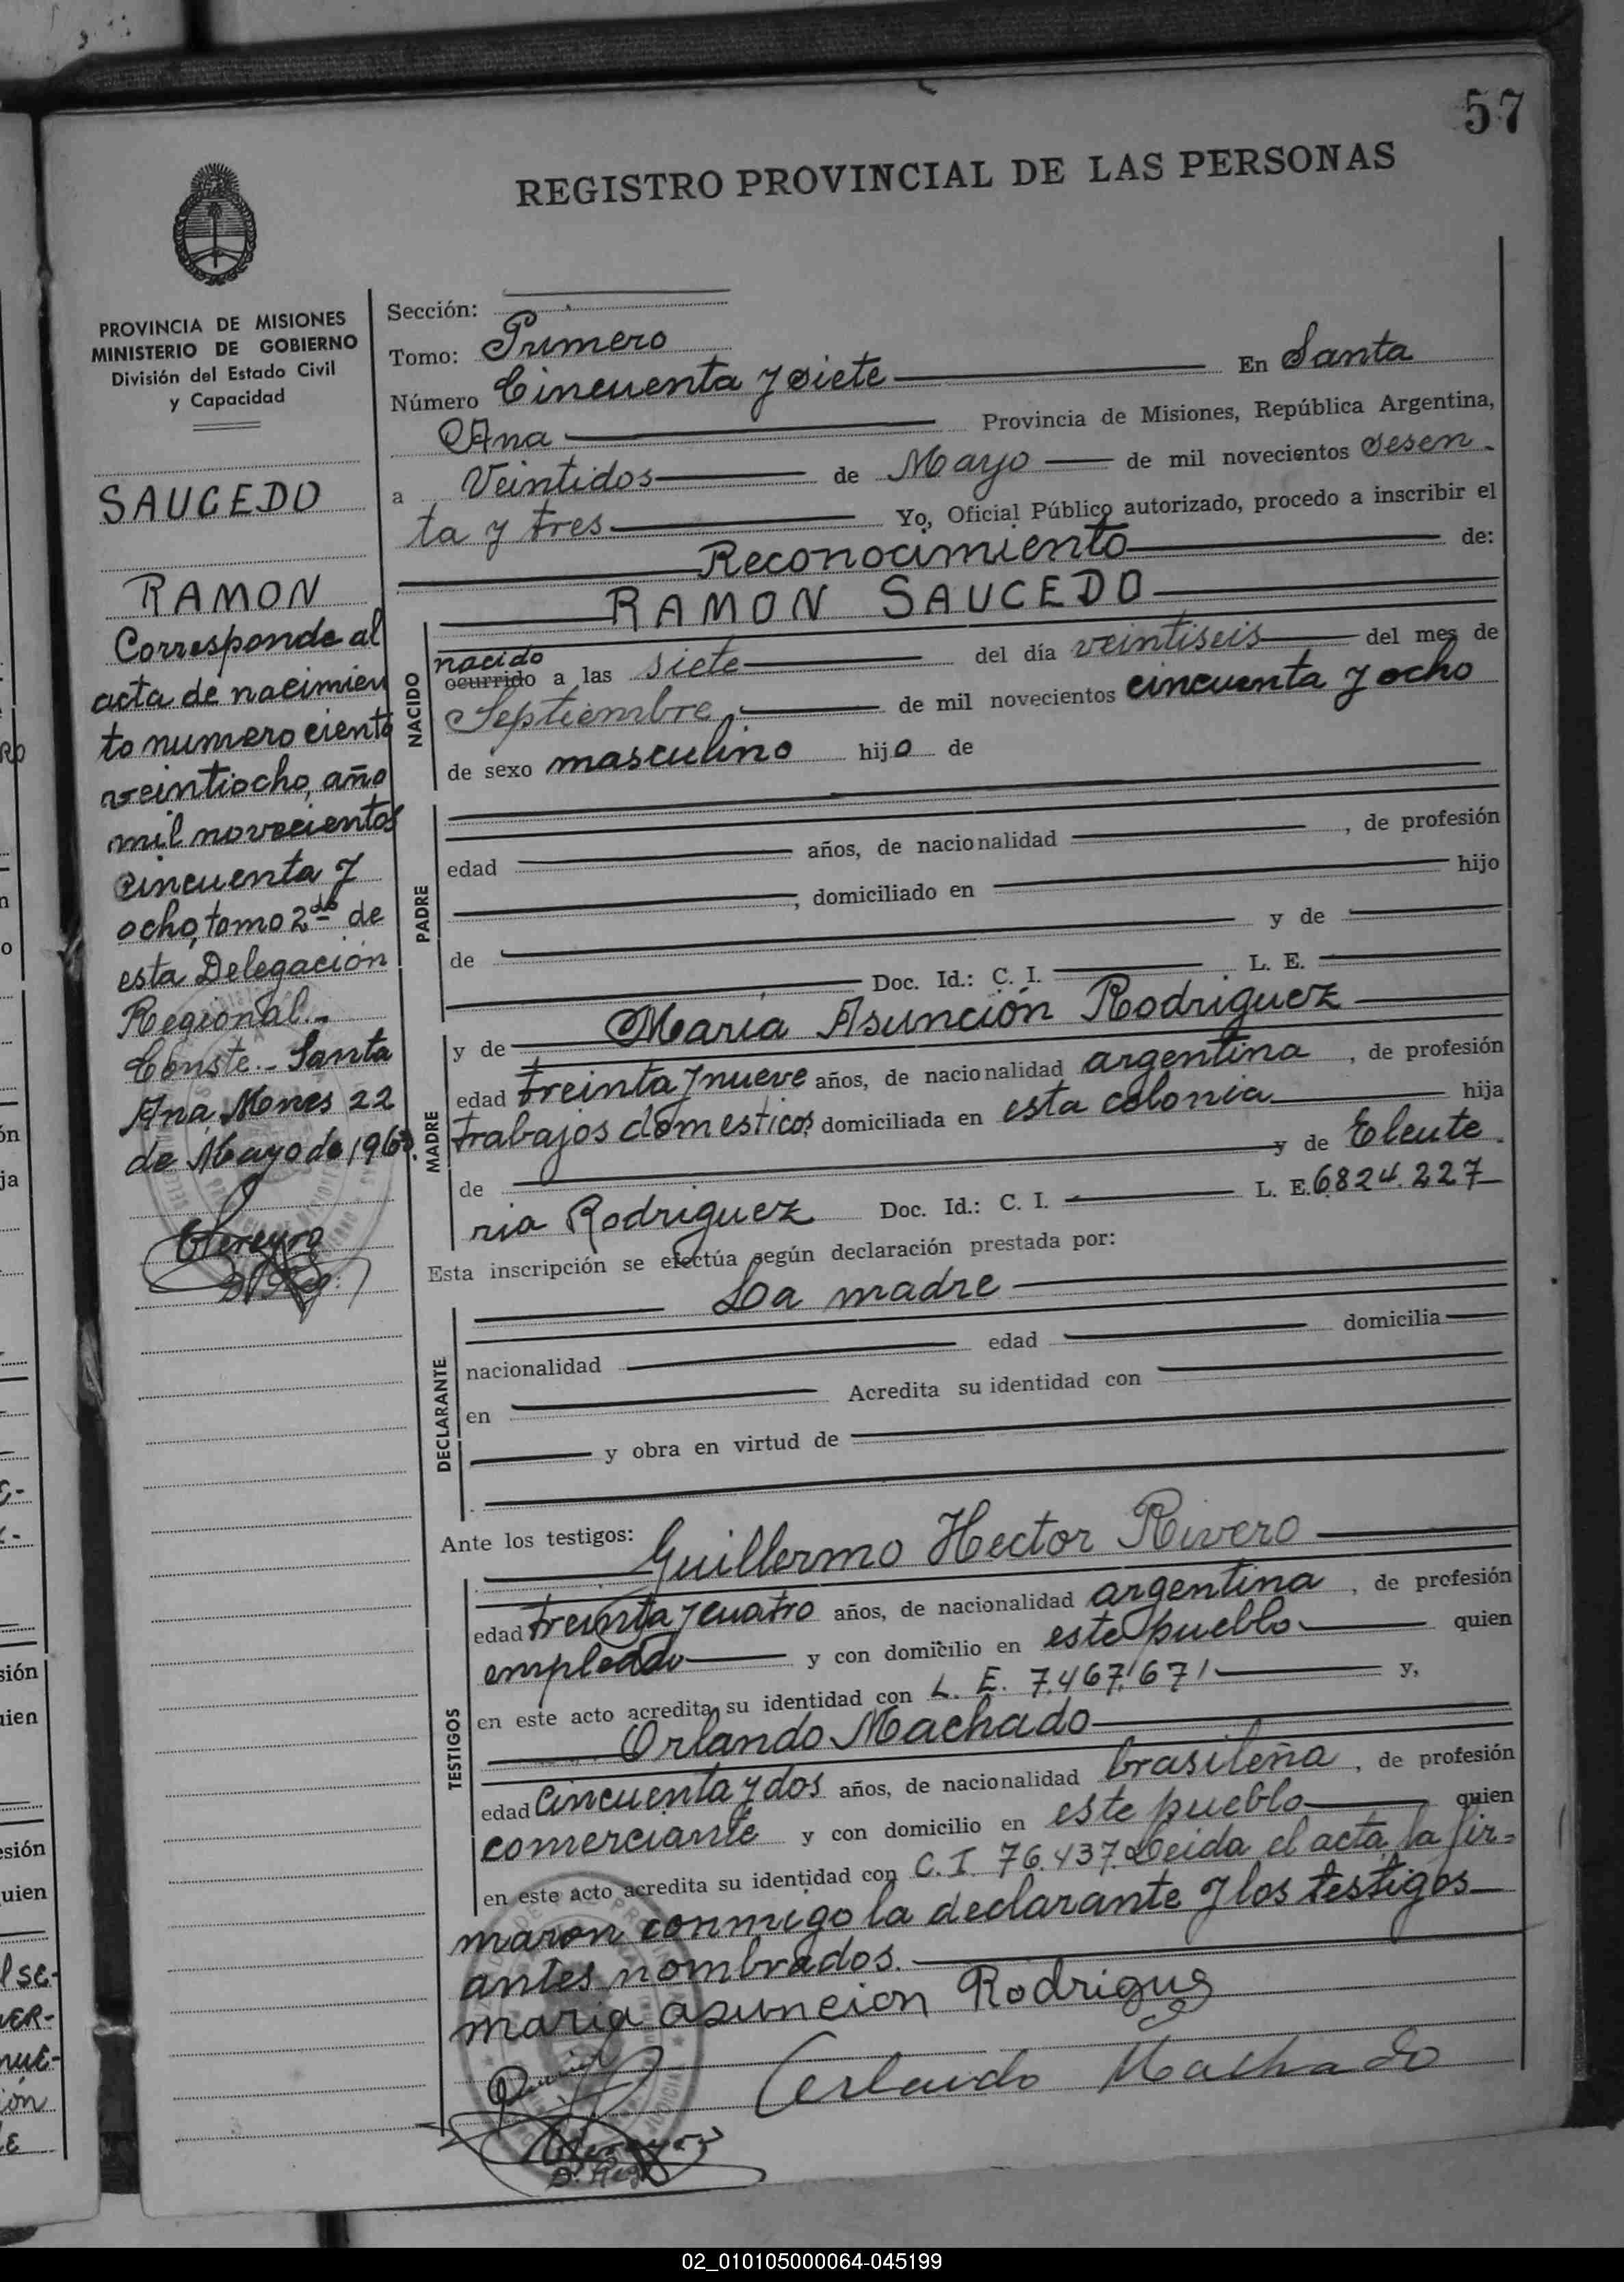 57
REGISTRO PROVINCIAL DE LAS PERSONAS
PROVINCIA DE MISIONES
MINISTERIO DE GOBIERNO
División del Estado Civil
y Capacidad
SAUCEDO
RAMON
Corresponde al
acta de nacimien
to numero ciento
veintiocho, año
mil novecientos
cincuenta y
ocho, tomo 2do de
esta Delegación
Regional.-
Conste.- Santa
Ana Mones 22
de Mayo de 1963.
Sección:
Tomo: Primero
Número Cincuenta y siete En Santa
Ana Provincia de Misiones, República Argentina,
a Veintidos de Mayo de mil novecientos sesen
ta y tres Yo, Oficial Público autorizado, procedo a inscribir el
Reconocimiento de:
RAMON SAUCEDO
NACIDO
nacido
ocurrido a las siete del día veintiseis del mes de
Septiembre de mil novecientos cincuenta y ocho
de sexo masculino hijo de
PADRE
edad años, de nacionalidad , de profesión
, domiciliado en hijo
de y de
Doc. Id.: C. I. L. E.
MADRE
y de Maria Asunción Rodriguez
edad treinta y nueve años, de nacionalidad argentina , de profesión
trabajos domesticos domiciliada en esta colonia hija
de y de Eleute
ria Rodriguez Doc. Id.: C. I. L. E. 6824.227
Esta inscripción se efectúa según declaración prestada por:
La madre
DECLARANTE
nacionalidad edad domicilia
en Acredita su identidad con
y obra en virtud de
Ante los testigos: Guillermo Hector Rivero
TESTIGOS
edad treinta y cuatro años, de nacionalidad argentina , de profesión
empleado y con domicilio en este pueblo quien
en este acto acredita su identidad con L. E. 7.467.671 y,
Orlando Machado
edad cincuenta y dos años, de nacionalidad brasileña , de profesión
comerciante y con domicilio en este pueblo quien
en este acto acredita su identidad con C. I 76.437. Leida el acta, la fir=
maron conmigo la declarante y los testigos
antes nombrados.
maria asuncion Rodrigue
Machado
02_010105000064-045199